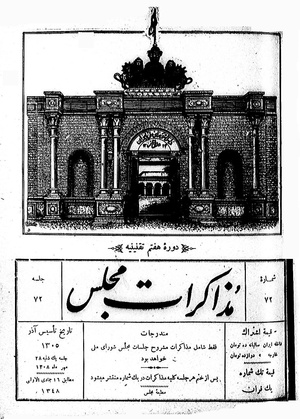 دورهٔ هفتم تقنینیه
مذاکرات مجلس
شمارهٔ
۷۲
جلسه
۷۲
تاریخ تأسیس آذر
۱۳۰۵
جلسه یك شنبه ۲۸
مهر ماه ۱۳۰۸
مطابق ۱۶ جمادی الاولی
۱۳۴۸
مندرجات
فقط شامل مذاکرات مشروح جلسات مجلس شورای ملی
خواهد بود
پس از ختم هر جلسه کلیه مذاکرات در یك شماره منتشر میشود
مطبعهٔ مجلس
قیمت اشتراك
داخله ایران سالیانه ده تومان
خارجه » دوازده تومان
قیمت تك شماره
یك قران